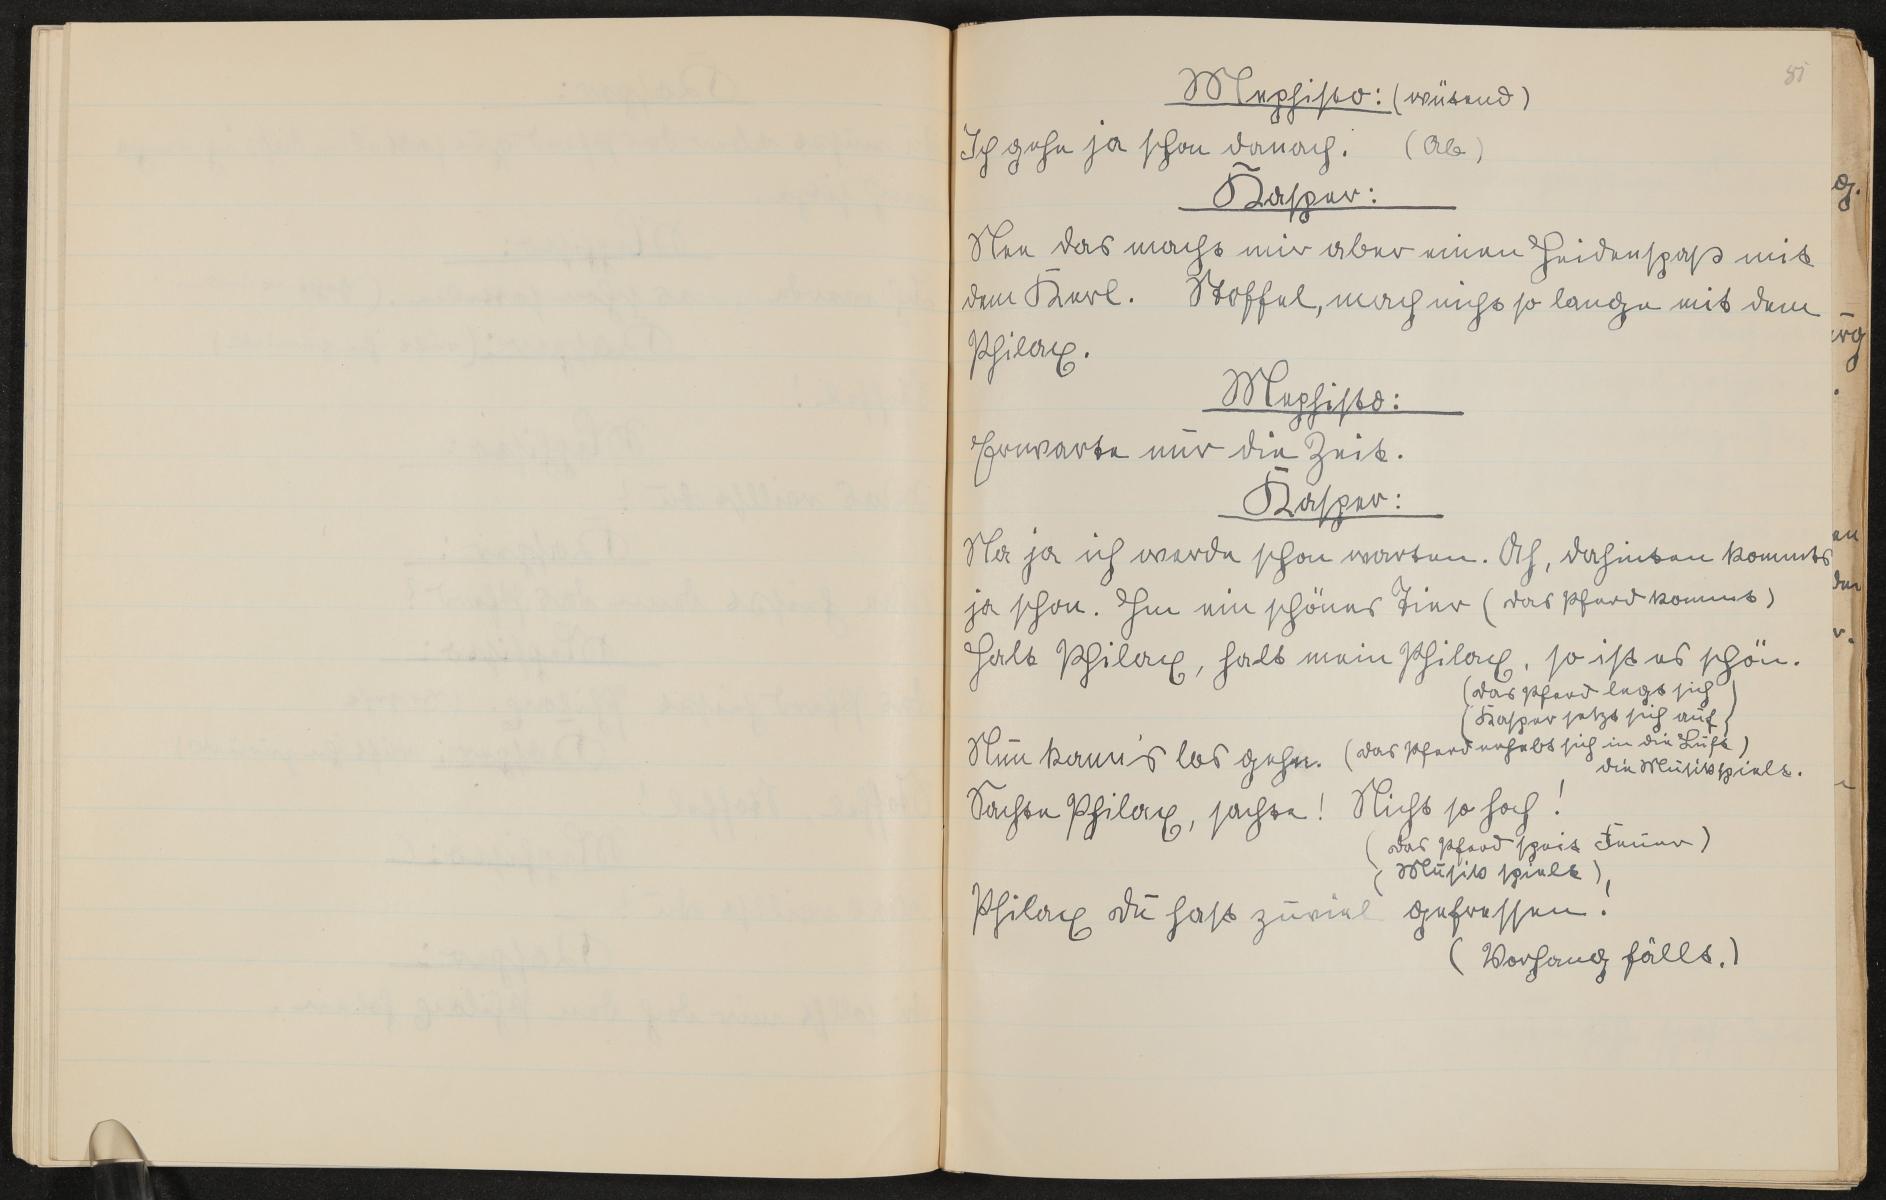 85
Mephisto: (wütend)
Ich gehe ja schon danach. (Ab)
Kasper:
Nee das macht mir aber einen Heidenspaß mit
dem Kerl. Stoffel, mach nicht so lange mit dem
Philax.
Mephisto:
Erwarte nur die Zeit.
Kasper:
Na ja ich werde schon warten. Ah, dahinten kommts
ja schon. Hm ein schönes Tier (das Pferd kommt)
Halt Philax, halt mein Philax, so ist es schön.
(das Pferd legt sich)
(Kasper setzt sich auf)
Nun kann's los gehn. (das Pferd erhebt sich in die Luft)
die Musik spielt.
Sachte Philax, sachte! Nicht so hoch!
(das Pferd speit Feuer)
(Musik spielt),
Philax du hast zuviel gefressen!
(Vorhang fällt.)